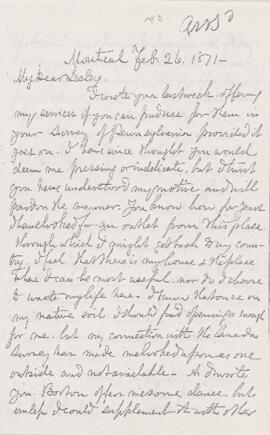 140
ansd
Montreal Feb. 26. 1871-
My Dear Lesley.
I wrote you last week offering
my services if you can produce for them in
your Survey of Pennsylvania provided it
goes on. I have since thought you would
deem me pressing or indelicate, but I trust
you have understood my motive and will
pardon the manner. You know how for years
I have looked for an outlet from this place
through which I might get back to my coun-
try. I feel that there is my house & the place
where I can be most useful, nor do I choose
to waste my life here - I know that once on
my native soil I should find openings enough
for me. but my connection with the Canadian
Survey has made me looked upon as one
outside and not available - As I wrote
you Boston offers me some chance, but
unless I could supplement it with other